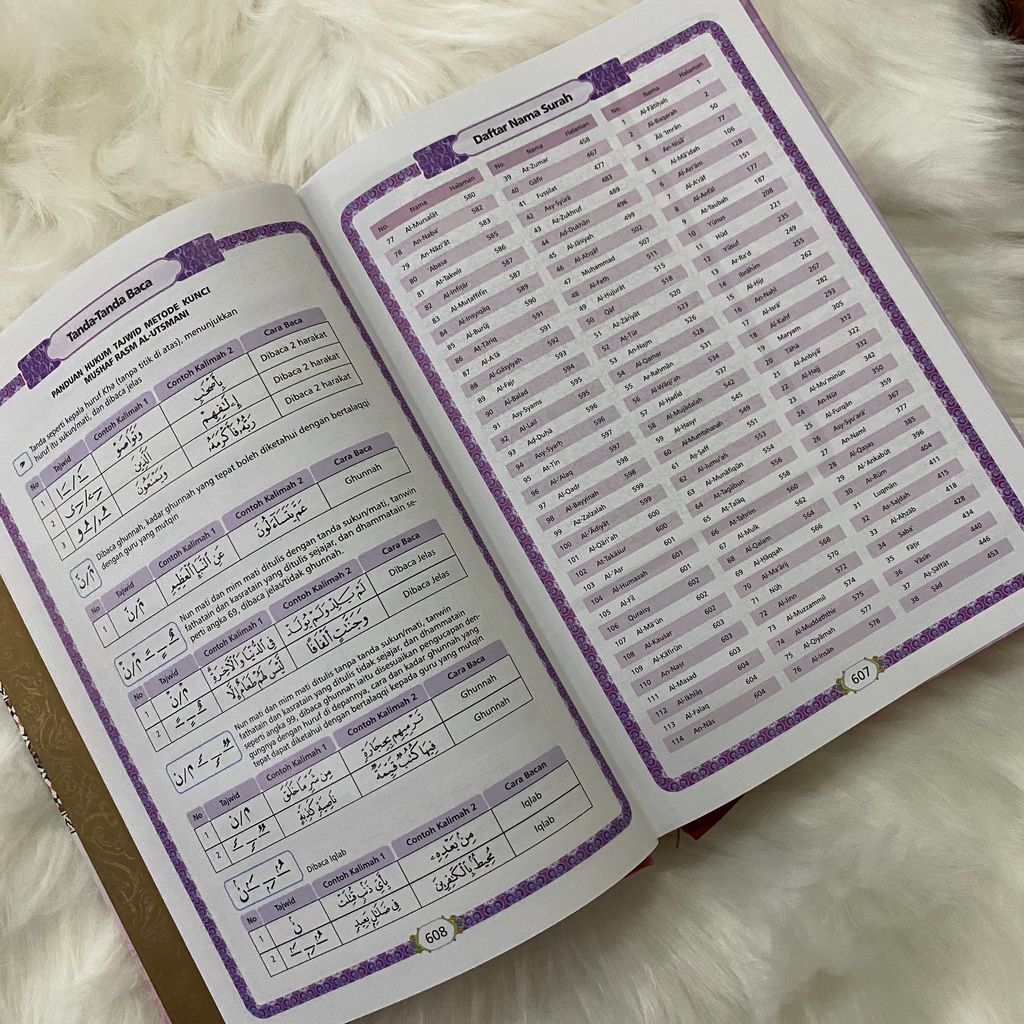 Daftar Nama Surah
No. Nama Halaman
1 Al-Fātiḥah 1
2 Al-Baqarah 2
3 Āli 'Imrān 50
4 An-Nisā' 77
5 Al-Mā'idah 106
6 Al-An'ām 128
7 Al-A'rāf 151
8 Al-Anfāl 177
9 At-Taubah 187
10 Yūnus 208
11 Hūd 221
12 Yūsuf 235
13 Ar-Ra'd 249
14 Ibrāhīm 255
15 Al-Ḥijr 262
16 An-Naḥl 267
17 Al-Isrā' 282
18 Al-Kahf 293
19 Maryam 305
20 Ṭāhā 312
21 Al-Anbiyā' 322
22 Al-Ḥajj 332
23 Al-Mu'minūn 342
24 An-Nūr 350
25 Al-Furqān 359
26 Asy-Syu'arā' 367
27 An-Naml 377
28 Al-Qaṣaṣ 385
29 Al-'Ankabūt 396
30 Ar-Rūm 404
31 Luqmān 411
32 As-Sajdah 415
33 Al-Aḥzāb 418
34 Saba' 428
35 Fāṭir 434
36 Yāsīn 440
37 Aṣ-Ṣāffāt 446
38 Ṣād 453
No. Nama Halaman
39 Az-Zumar 458
40 Gāfir 467
41 Fuṣṣilat 477
42 Asy-Syūrā 483
43 Az-Zukhruf 489
44 Ad-Dukhān 496
45 Al-Jāṡiyah 499
46 Al-Aḥqāf 502
47 Muḥammad 507
48 Al-Fatḥ 511
49 Al-Ḥujurāt 515
50 Qāf 518
51 Aż-Żāriyāt 520
52 Aṭ-Ṭūr 523
53 An-Najm 526
54 Al-Qamar 528
55 Ar-Raḥmān 531
56 Al-Wāqi'ah 534
57 Al-Ḥadīd 537
58 Al-Mujādalah 542
59 Al-Ḥasyr 545
60 Al-Mumtaḥanah 549
61 Aṣ-Ṣaff 551
62 Al-Jumu'ah 553
63 Al-Munāfiqūn 554
64 At-Tagābun 556
65 Aṭ-Ṭalāq 558
66 At-Taḥrīm 560
67 Al-Mulk 562
68 Al-Qalam 564
69 Al-Ḥāqqah 566
70 Al-Ma'ārij 568
71 Nūḥ 570
72 Al-Jinn 572
73 Al-Muzzammil 574
74 Al-Muddaththir 575
75 Al-Qiyāmah 577
76 Al-Insān 578
No. Nama Halaman
77 Al-Mursalāt 580
78 An-Naba' 582
79 An-Nāzi'āt 583
80 'Abasa 585
81 At-Takwīr 586
82 Al-Infiṭār 587
83 Al-Muṭaffifīn 587
84 Al-Insyiqāq 589
85 Al-Burūj 590
86 Aṭ-Ṭāriq 591
87 Al-A'lā 591
88 Al-Gāsyiyah 592
89 Al-Fajr 593
90 Al-Balad 594
91 Asy-Syams 595
92 Al-Lail 595
93 Aḍ-Ḍuḥā 596
94 Asy-Syarḥ 596
95 At-Tīn 597
96 Al-'Alaq 597
97 Al-Qadr 598
98 Al-Bayyinah 598
99 Az-Zalzalah 599
100 Al-'Ādiyāt 599
101 Al-Qāri'ah 600
102 At-Takāṡur 600
103 Al-'Aṣr 601
104 Al-Humazah 601
105 Al-Fīl 601
106 Quraisy 602
107 Al-Mā'ūn 602
108 Al-Kauṡar 602
109 Al-Kāfirūn 603
110 An-Naṣr 603
111 Al-Masad 603
112 Al-Ikhlāṣ 604
113 Al-Falaq 604
114 An-Nās 604
607
Tanda-Tanda Baca
PANDUAN HUKUM TAJWID METODE KUNCI
MUSHAF RASM AL-UTSMANI
Tanda seperti kepala huruf Kha (tanpa titik di atas), menunjukkan
huruf itu sukun/mati, dan dibaca jelas
No Tajwid Contoh Kalimah 1 Contoh Kalimah 2 Cara Baca
1 وَتَوَاصَوْا بِأَصْحَٰبِ Dibaca 2 harakat
2 الَّذِينَ Dibaca 2 harakat
3 وَيَمْنَعُونَ Dibaca 2 harakat
مّ/نّ Dibaca ghunnah, kadar ghunnah yang tepat boleh diketahui dengan bertalaqqi
dengan guru yang mutqin
No Tajwid Contoh Kalimah 1 Contoh Kalimah 2 Cara Baca
1 مّ/نّ عَنِ النَّبَإِ الْعَظِيمِ عَمَّ يَتَسَاءَلُونَ Ghunnah
Nun mati dan mim mati ditulis dengan tanda sukun/mati, tanwin
fathatain dan kasratain yang ditulis sejajar, dan dhammatain se-
perti angka 69, dibaca jelas/tidak ghunnah.
No Tajwid Contoh Kalimah 1 Contoh Kalimah 2 Cara Baca
1 مْ/نْ فِي الدُّنْيَا وَالْآخِرَةِ لَمْ يَلِدْ وَلَمْ يُولَدْ Dibaca Jelas
2 لَيْسَ لَهُمْ طَعَامٌ إِلَّا وَجَنَّٰتٍ أَلْفَافًا Dibaca Jelas
Nun mati dan mim mati ditulis tanpa tanda sukun/mati, tanwin
fathatain dan kasratain yang ditulis tidak sejajar, dan dhammatain
seperti angka 99, dibaca ghunnah iaitu disesuaikan pengucapan den-
gungnya dengan huruf di depannya, cara dan kadar ghunnah yang
tepat dapat diketahui dengan bertalaqqi kepada guru yang mutqin
No Tajwid Contoh Kalimah 1 Contoh Kalimah 2 Cara Baca
1 م/ن مِن شَرِّ مَا خَلَقَ تَرْمِيهِم بِحِجَارَةٍ Ghunnah
2 نَاصِيَةٍ كَٰذِبَةٍ فِيهَا كُتُبٌ قَيِّمَةٌ Ghunnah
Dibaca Iqlab
No Tajwid Contoh Kalimah 1 Contoh Kalimah 2 Cara Bacan
1 بِأَيِّ ذَنۢبٍ قُتِلَتْ مِنۢ بَعْدِهِۦ Iqlab
2 فِي ضَلَٰلٍۭ بَعِيدٍ مُحِيطٌۢ بِالْكَٰفِرِينَ Iqlab
608